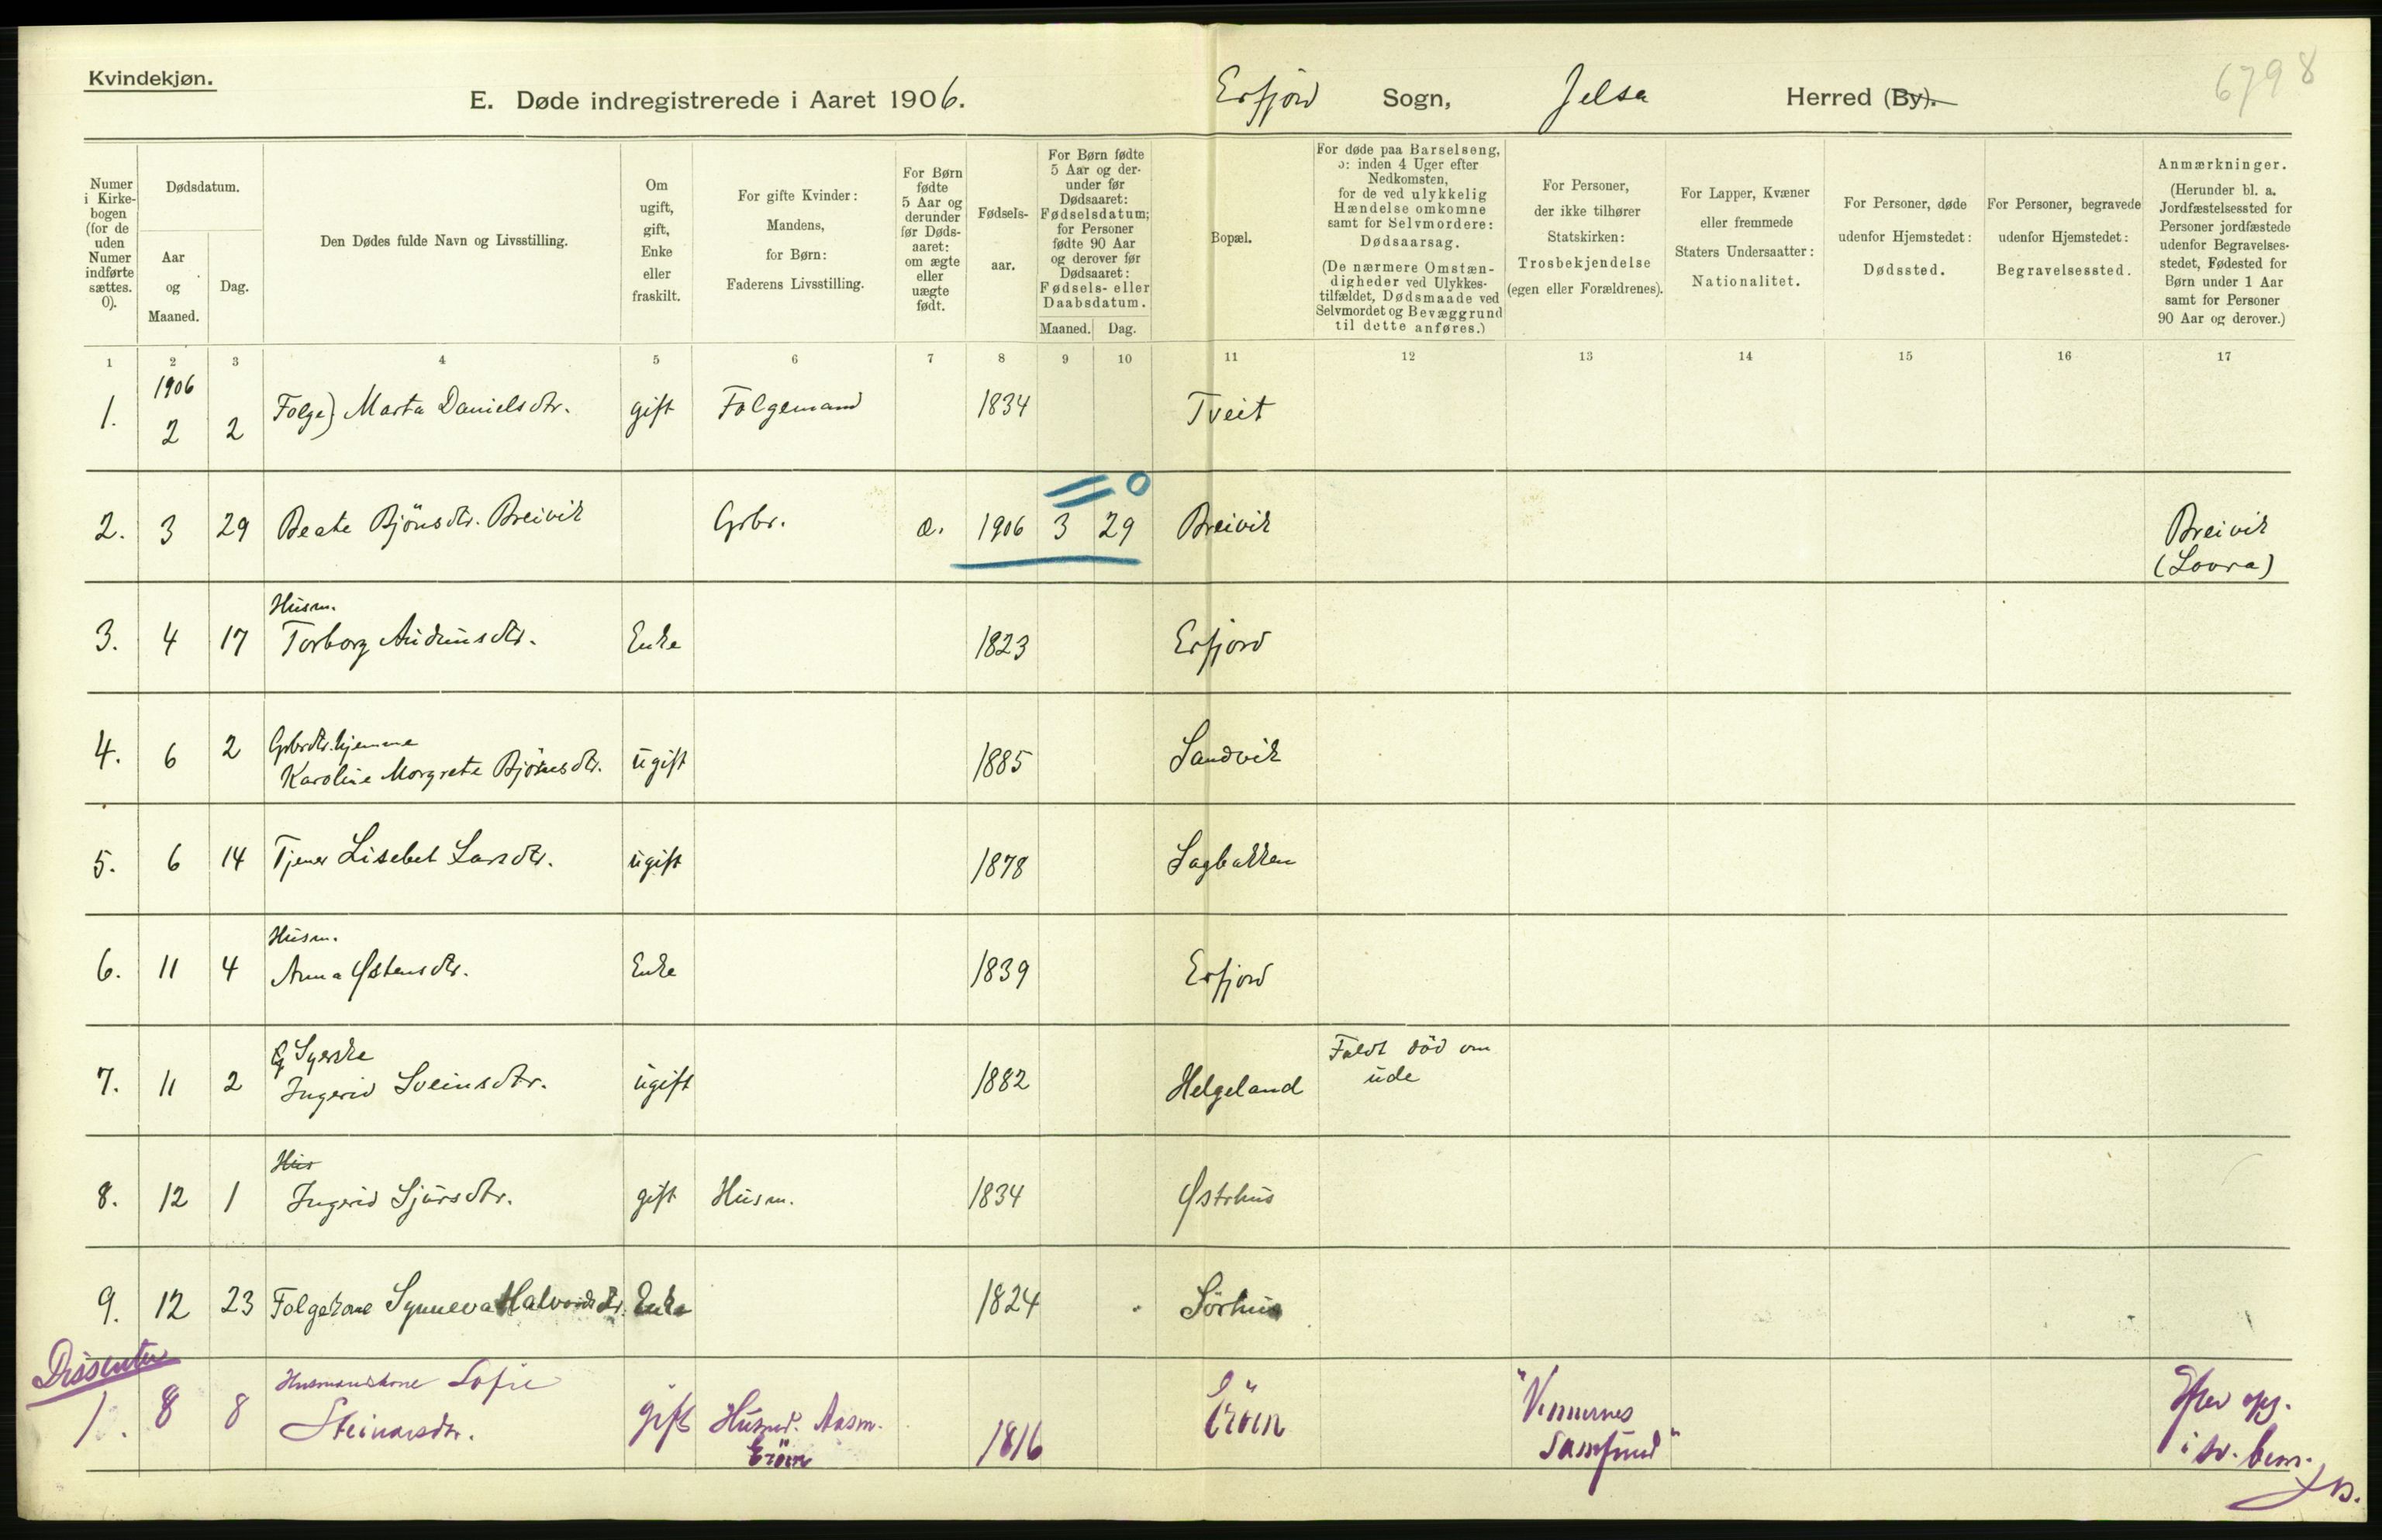 Kvindekjøn.
E. Døde indregistrerede i Aaret 1906.
Erfjord Sogn, Jelsa Herred (By).
6798
Numer i Kirkebogen (for de uden Numer indførte sættes. 0).
Dødsdatum.
Aar og Maaned.
Dag.
Den Dødes fulde Navn og Livsstilling.
Om ugift, gift, Enke eller fraskilt.
For gifte Kvinder: Mandens, for Børn: Faderens Livsstilling.
For Børn fødte 5 Aar og derunder før Døds-aaret: om ægte eller uægte født.
Fødsels-aar.
For Børn fødte 5 Aar og der-under før Dødsaaret: Fødselsdatum; for Personer fødte 90 Aar og derover før Dødsaaret: Fødsels- eller Daabsdatum.
Maaned. Dag.
Bopæl.
For døde paa Barselseng, ɔ: inden 4 Uger efter Nedkomsten, for de ved ulykkelig Hændelse omkomne samt for Selvmordere: Dødsaarsag.
(De nærmere Omstæn-digheder ved Ulykkes-tilfældet, Dødsmaade ved Selvmordet og Bevæggrund til dette anføres.)
For Personer, der ikke tilhører Statskirken: Trosbekjendelse (egen eller Forældrenes).
For Lapper, Kvæner eller fremmede Staters Undersaatter: Nationalitet.
For Personer, døde udenfor Hjemstedet: Dødssted.
For Personer, begravede udenfor Hjemstedet: Begravelsessted.
Anmærkninger.
(Herunder bl. a. Jordfæstelsessted for Personer jordfæstede udenfor Begravelses-stedet, Fødested for Børn under 1 Aar samt for Personer 90 Aar og derover.)
1 2 3 4 5 6 7 8 9 10 11 12 13 14 15 16 17
1906
1. 2 2 Folge) Marta Danielsdtr. gift Folgemand 1834 Tveit
0
2. 3 29 Beate Bjönsdtr. Breivik Grbr. æ. 1906 3 29 Breivik Breivik
(Lovra)
Husm.
3. 4 17 Torborg Audunsdtr. Enke 1823 Erfjord
Grbrdtr. hjemme
4. 6 2 Karoline Morgrete Bjönsdtr. ugift 1885 Sandvik
5. 6 14 Tjener Lisebet Larsdtr. ugift 1878 Sagbakken
Husm.
6. 11 4 Anna Østensdtr. Enke 1839 Erfjord
Syerske
7. 11 2 Ingerid Sveinsdtr. ugift 1882 Helgeland Faldt död om
ude
Hus
8. 12 1 Ingerid Sjursdtr. gift Husm. 1834 Østrhus
9. 12 23 Folgekone Synneva Halvorsdtr. Enke 1824 Sörhus
Dissenter
Husmandskone Sofie
1. 8 8 Steinarsdtr. gift Husmd. Aasm.
Eröen 1816 Eröen "Vennernes
Samfund" Efter opg.
i sv. bem.